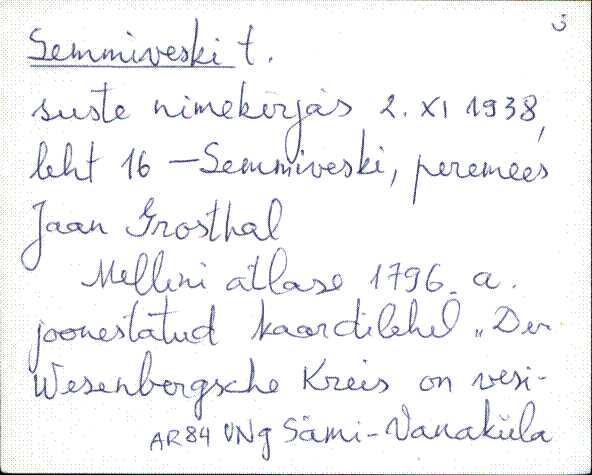 3
Semmiveski t.
suste nimekirjas 2. XI 1938,
leht 16 — Semmiveski, peremees
Jaan Grosthal
Mellini atlase 1796. a.
joonestatud kaardilehel „Der
Wesenbergsche Kreis on vesi-
AR84 VNg Sämi-Vanaküla